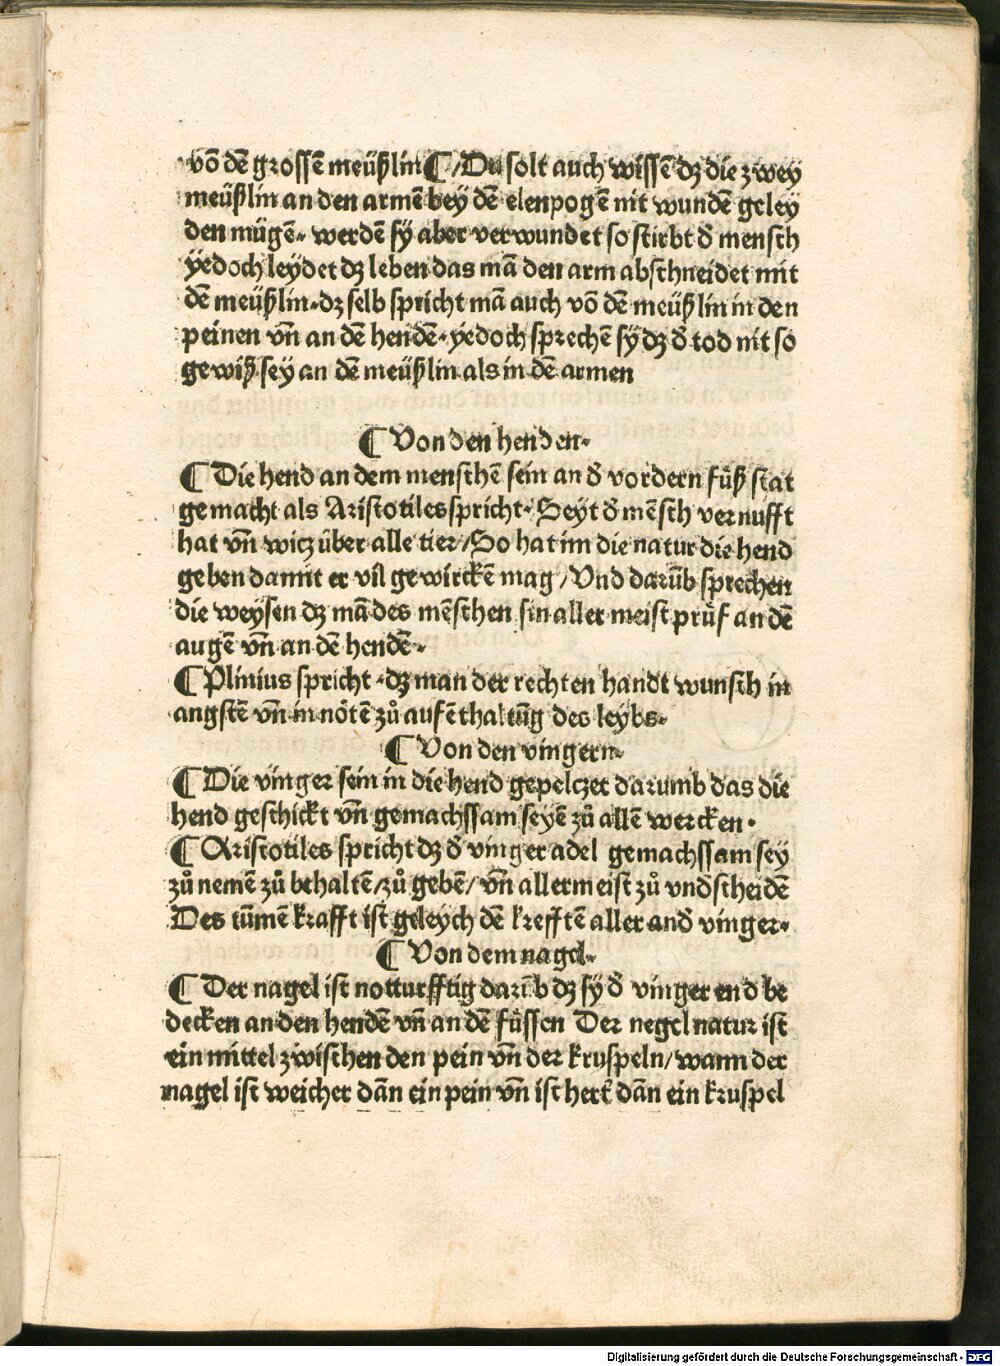 võ dẽ grossẽ meüßlin ¶ /Du solt auch wissẽ dz die zwey
meüßlin an den armẽ bey dẽ elenpogẽ nit wundẽ geley
den mügẽ· werdẽ sy aber verwundet so stirbt đ mensch
yedoch leydet dz leben das mã den arm abschneidet mit
dẽ meüßlin·dz selb spricht mã auch võ dẽ meüßlin in den
peinen vñ an dẽ hendẽ·yedoch sprechẽ sy dz đ tod nit so
gewiß sey an dẽ meüßlin als in dẽ armen
¶ Von den henden·
¶ Die hend an dem menschẽ sein an đ vordern fuͤß stat
gemacht als Aristotiles spricht· Seyt đ mẽsch vernufft
hat vñ wicz über alle tier/So hat im die natur die hend
geben damit er vil gewirckẽ mag /Vnd darũb sprechen
die weysen dz mã des mẽschen sin aller meist pruͤf an dẽ
augẽ vñ an dẽ hendẽ·
¶ Plinius spricht ·dz man der rechten handt wunsch in
angstẽ vñ in noͤtẽ zů aufẽthaltũg des leybs·
¶ Von den vingern·
¶ Die vinger sein in die hend gepelczet darumb das die
hend geschickt vñ gemachssam seyẽ zů allẽ wercken·
¶ Aristotiles spricht dz đ vinger adel gemachssam sey
zů nemẽ zů behaltẽ/zů gebẽ/ vñ allermeist zů vnđscheidẽ
Des tũmẽ krafft ist geleych dẽ krefftẽ aller anđ vinger·
¶ Von dem nagel·
¶ Der nagel ist notturfftig darũb dz sy đ vinger end be
decken an den hendẽ vñ an dẽ fuͤssen Der negel natur ist
ein mittel zwischen den pein vñ der kruspeln/wann der
nagel ist weicher dãn ein pein vñ ist hert dãn ein kruspel
Digitalisierung gefördert durch die Deutsche Forschungsgemeinschaft - DFG